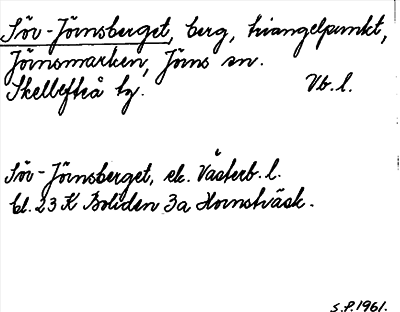 Söv-Jörnsberget, berg, triangelpunkt,
Jörnsmarken, Jörns sn.
Skellefteå tg. Vb. l.
Söv-Jörnsberget, ek. Västerb. l.
bl. 23 K Boliden 3a Hornsträsk.
S.P. 1961.